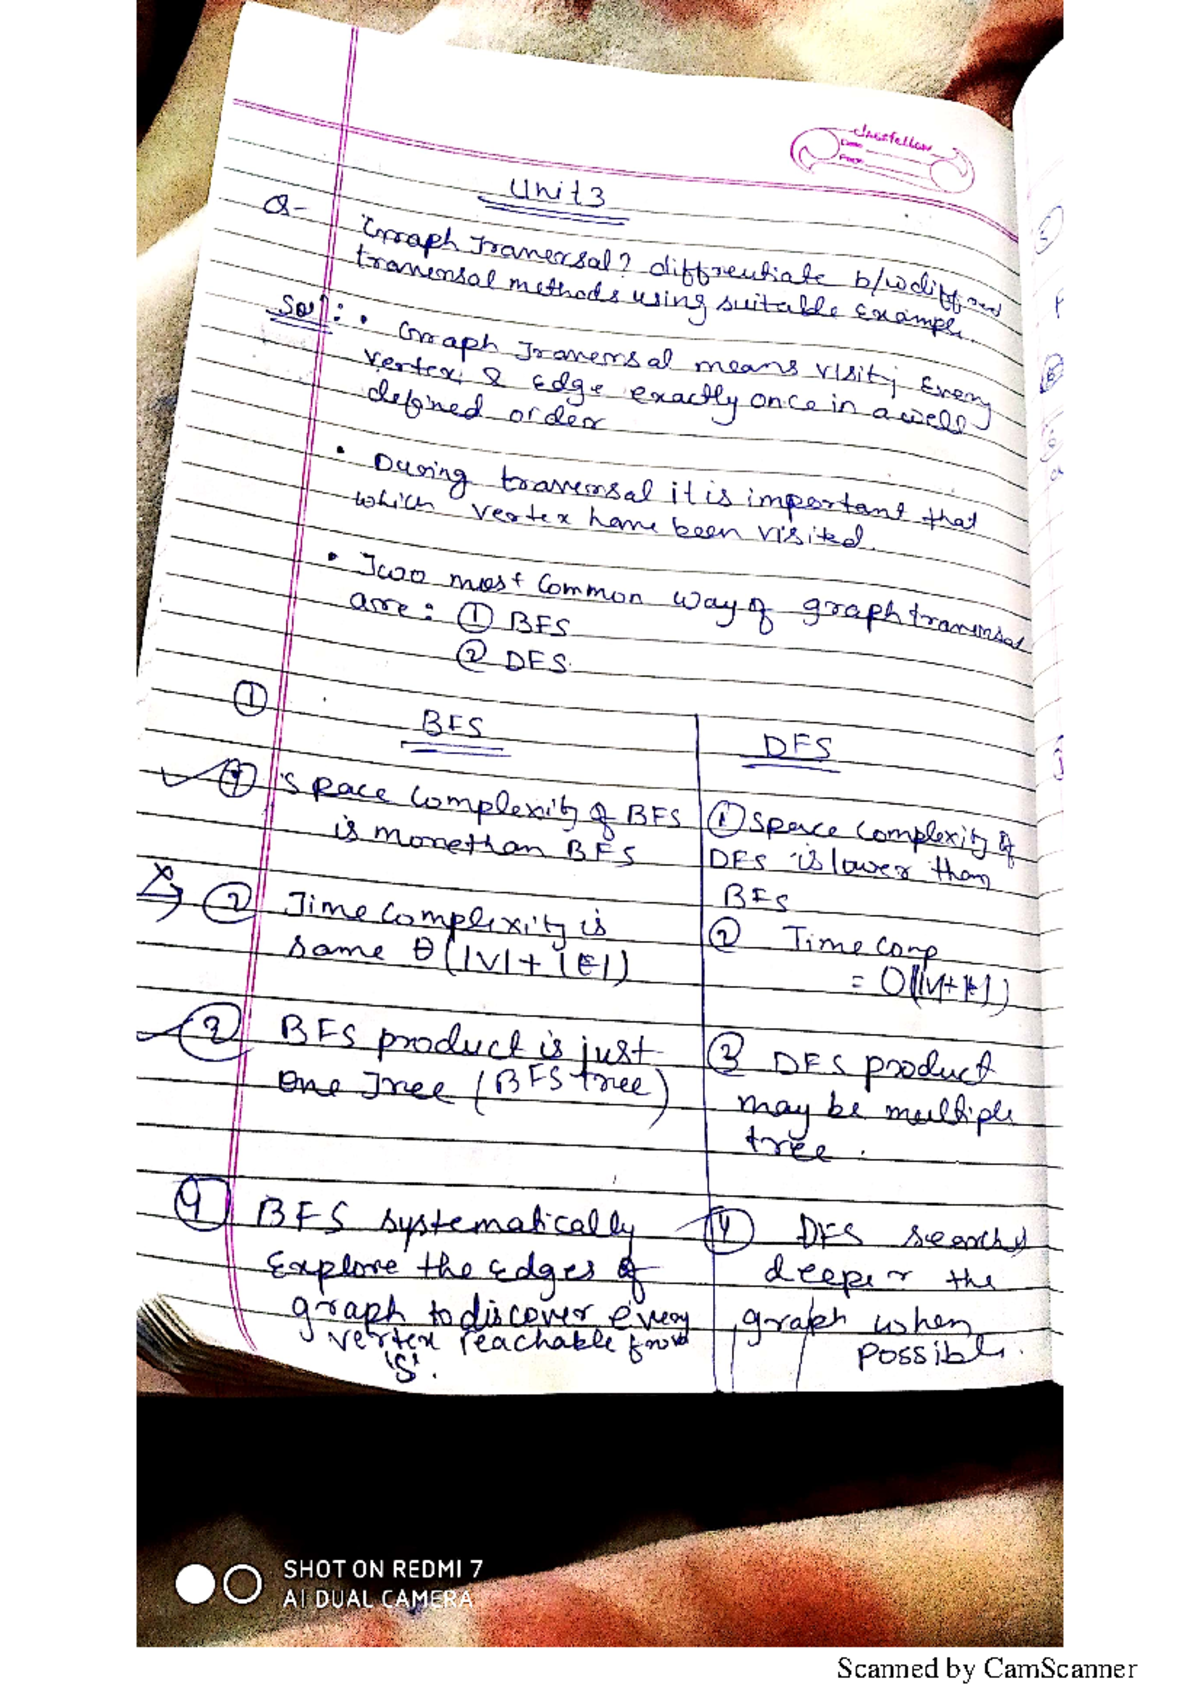 classfellow
Date
Page
Unit 3
Q- Graph Traversal? diffrentiate b/w diffrent
traversal methods using suitable Example.
Sol?: • Graph Traversal means visit; Every
vertex & Edge exactly once in a well
defined order
• During traversal it is important that
which vertex have been visited.
• Two most Common way of graph traversal
are: ① BFS
② DFS.
①
BFS DFS
① Space Complexity of BFS
is more than BFS
① Space Complexity of
DFS is lower than
BFS
② Time Complexity is
same θ(|V|+|E|)
② Time Comp
= O(|V|+|E|)
③ BFS product is just
one Tree (BFS tree)
③ DFS product
may be multiple
tree.
④ BFS systematically
Explore the Edges of
graph to discover every
vertex reachable from
'S'.
④ DFS search
deeper the
graph when
possible.
SHOT ON REDMI 7
AI DUAL CAMERA
Scanned by CamScanner